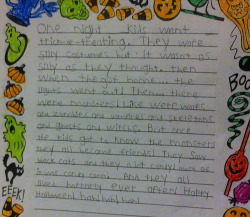 One night kids went
trick-or-treating. They wore
silly costumes but it wasnt as
silly as they thought. then
When they got home the
lights went out! Then... there
were monsters! Like werewolves
and zombies and and skeletons
and ghosts and witches. But once
the kids got to know the monsters
they all became friends! They saw
black cats and they ate candy
candy corn. And they all
lived happily ever after! Happy
Halloween
BOO
EEEK!